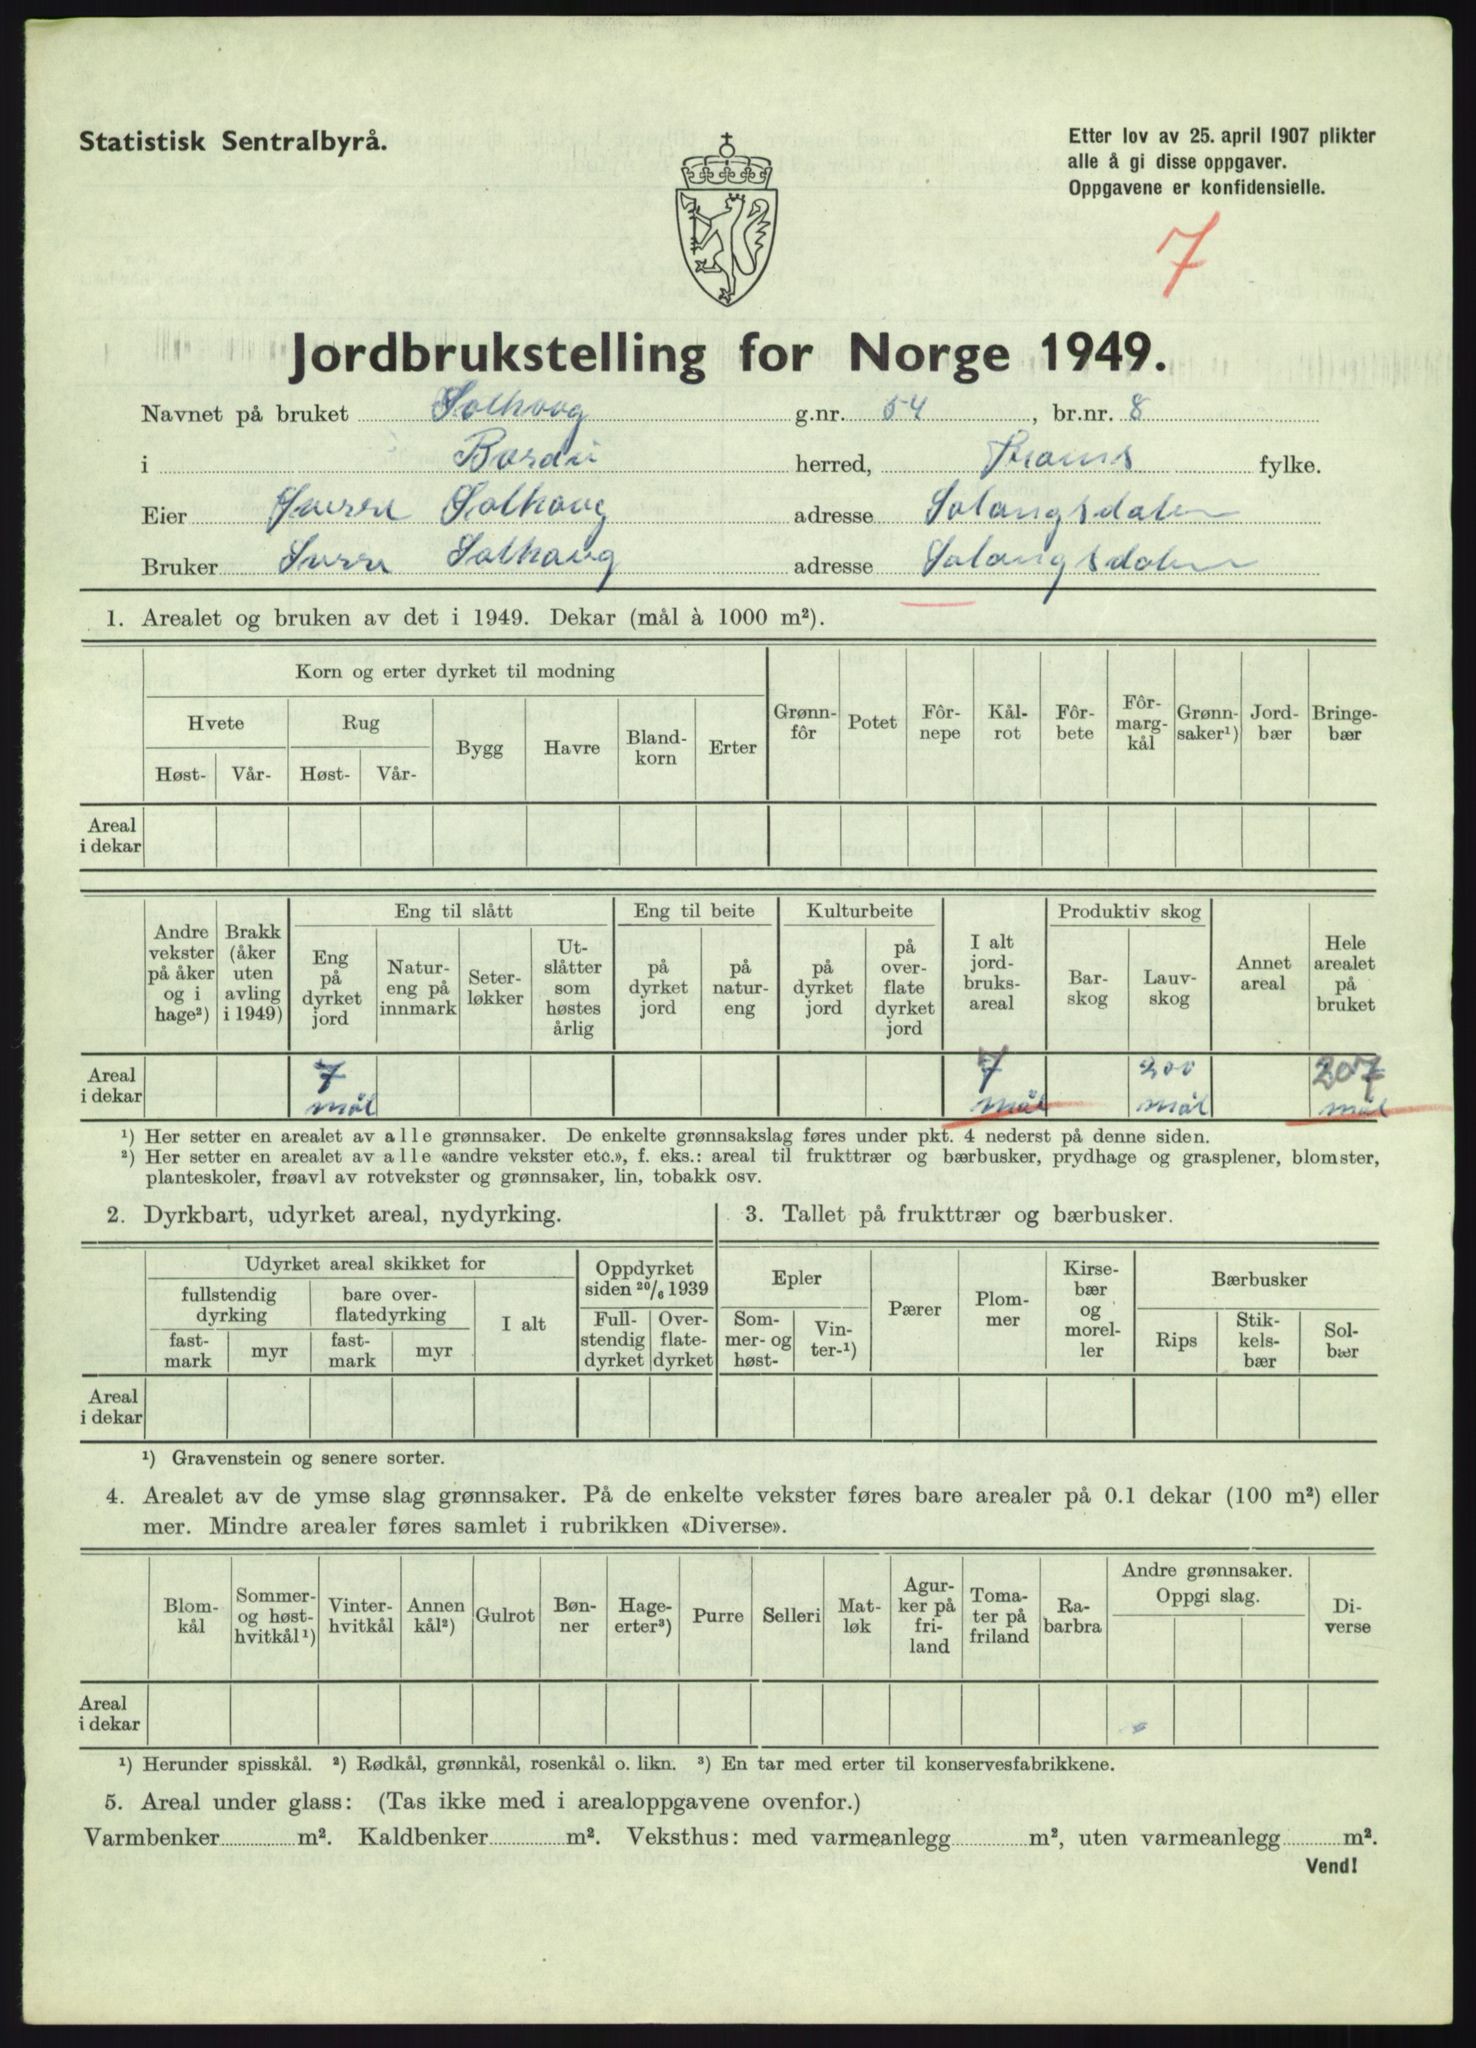 Statistisk Sentralbyrå.
Etter lov av 25. april 1907 plikter
alle å gi disse oppgaver.
Oppgavene er konfidensielle.
7
Jordbrukstelling for Norge 1949.
Navnet på bruket Solhaug g.nr. 54, br.nr. 8
i Bardu herred, Troms fylke.
Eier Sverre Solhaug adresse Salangsdalen
Bruker Sverre Solhaug adresse Salangsdalen
1. Arealet og bruken av det i 1949. Dekar (mål à 1000 m²).
Korn og erter dyrket til modning
Hvete Rug Bygg Havre Bland-korn Erter Grønn-fôr Potet Fôr-nepe Kål-rot Fôr-bete Fôr-marg-kål Grønn-saker¹) Jord-bær Bringe-bær
Høst- Vår- Høst- Vår-
Areal i dekar
Andre vekster på åker og i hage²) Brakk (åker uten avling i 1949) Eng til slått Eng til beite Kulturbeite I alt jord-bruks-areal Produktiv skog Annet areal Hele arealet på bruket
Eng på dyrket jord Natur-eng på innmark Seter-løkker Ut-slåtter som høstes årlig på dyrket jord på natur-eng på dyrket jord på over-flate dyrket jord Bar-skog Lauv-skog
Areal i dekar 7 mål 7 mål 200 mål 207 mål
¹) Her setter en arealet av alle grønnsaker. De enkelte grønnsakslag føres under pkt. 4 nederst på denne siden.
²) Her setter en arealet av alle «andre vekster etc.», f. eks.: areal til frukttrær og bærbusker, prydhage og grasplener, blomster,
planteskoler, frøavl av rotvekster og grønnsaker, lin, tobakk osv.
2. Dyrkbart, udyrket areal, nydyrking.
Udyrket areal skikket for Oppdyrket siden 20/6 1939
fullstendig dyrking bare over-flatedyrking I alt Full-stendig dyrket Over-flate-dyrket
fast-mark myr fast-mark myr
Areal i dekar
3. Tallet på frukttrær og bærbusker.
Epler Pærer Plom-mer Kirse-bær og morel-ler Bærbusker
Som-mer- og høst- Vin-ter-¹) Rips Stik-kels-bær Sol-bær
¹) Gravenstein og senere sorter.
4. Arealet av de ymse slag grønnsaker. På de enkelte vekster føres bare arealer på 0.1 dekar (100 m²) eller
mer. Mindre arealer føres samlet i rubrikken «Diverse».
Blom-kål Sommer- og høst-hvitkål¹) Vinter-hvitkål Annen kål²) Gulrot Bøn-ner Hage-erter³) Purre Selleri Mat-løk Agur-ker på fri-land Toma-ter på friland Ra-barbra Andre grønnsaker. Oppgi slag. Di-verse
Areal i dekar
¹) Herunder spisskål. ²) Rødkål, grønnkål, rosenkål o. likn. ³) En tar med erter til konservesfabrikkene.
5. Areal under glass: (Tas ikke med i arealoppgavene ovenfor.)
Varmbenker m². Kaldbenker m². Veksthus: med varmeanlegg m², uten varmeanlegg m².
Vend!